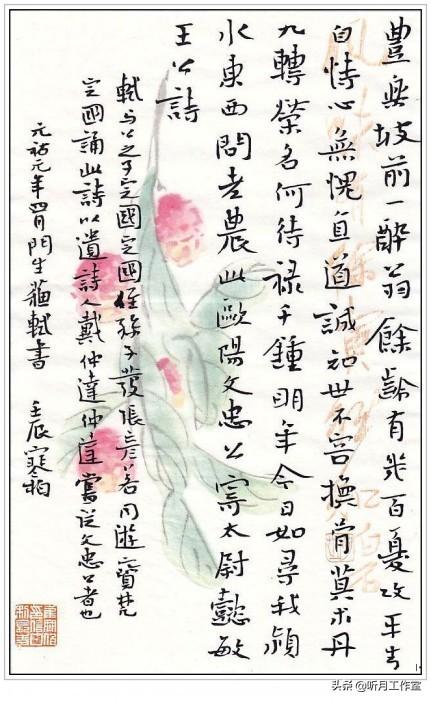 豐樂坡前一醉翁餘齡有幾百憂攻平生
自恃心無愧直道誠知世不容換骨莫求丹
九轉榮名何待祿千鍾明年今日如尋我潁
水東西問老農此歐陽文忠公寄太尉懿敏
王公詩
軾與公之子定國定國姪孫子發張彥若同遊寶梵
定國誦此詩以遺詩人戴仲達仲達嘗從文忠公者也
元祐元年四月門生蘇軾書 壬辰寒
头条 @听月工作室